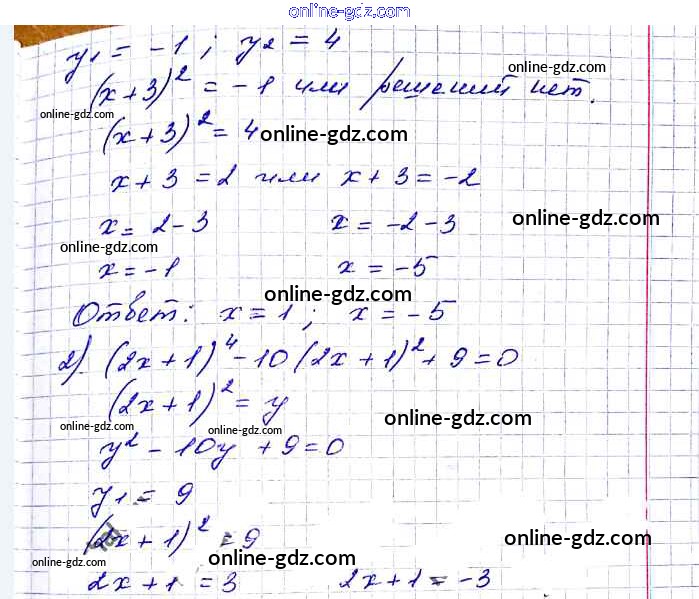 online-gdz.com
y₁ = -1 ; y₂ = 4
online-gdz.com
(x+3)² = -1 или решений нет.
online-gdz.com
(x+3)² = 4 online-gdz.com
x + 3 = 2 или x + 3 = -2
x = 2-3 x = -2-3 online-gdz.com
online-gdz.com
x = -1 x = -5
online-gdz.com
Ответ: x = 1 ; x = -5
2). (2x+1)⁴ - 10(2x+1)² + 9 = 0
(2x+1)² = y online-gdz.com
online-gdz.com online-gdz.com
y² - 10y + 9 = 0
y₁ = 9
(2x+1)² = 9 online-gdz.com
online-gdz.com online-gdz.com
2x+1 = 3 2x+1 = -3